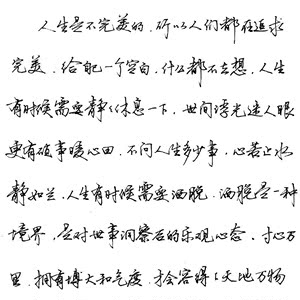 人生是不完美的.所以人们都在追求
完美.给自己一个空白.什么都不去想.人生
有时候需要静静休息一下.世间浮光迷人眼
更有破事暖心田.不问人生多少事.心若止水
静如兰.人生有时候需要洒脱.洒脱是一种
境界.是对世事洞察后的乐观心态.寸心万
里.拥有博大和气度.才会容得下天地万物